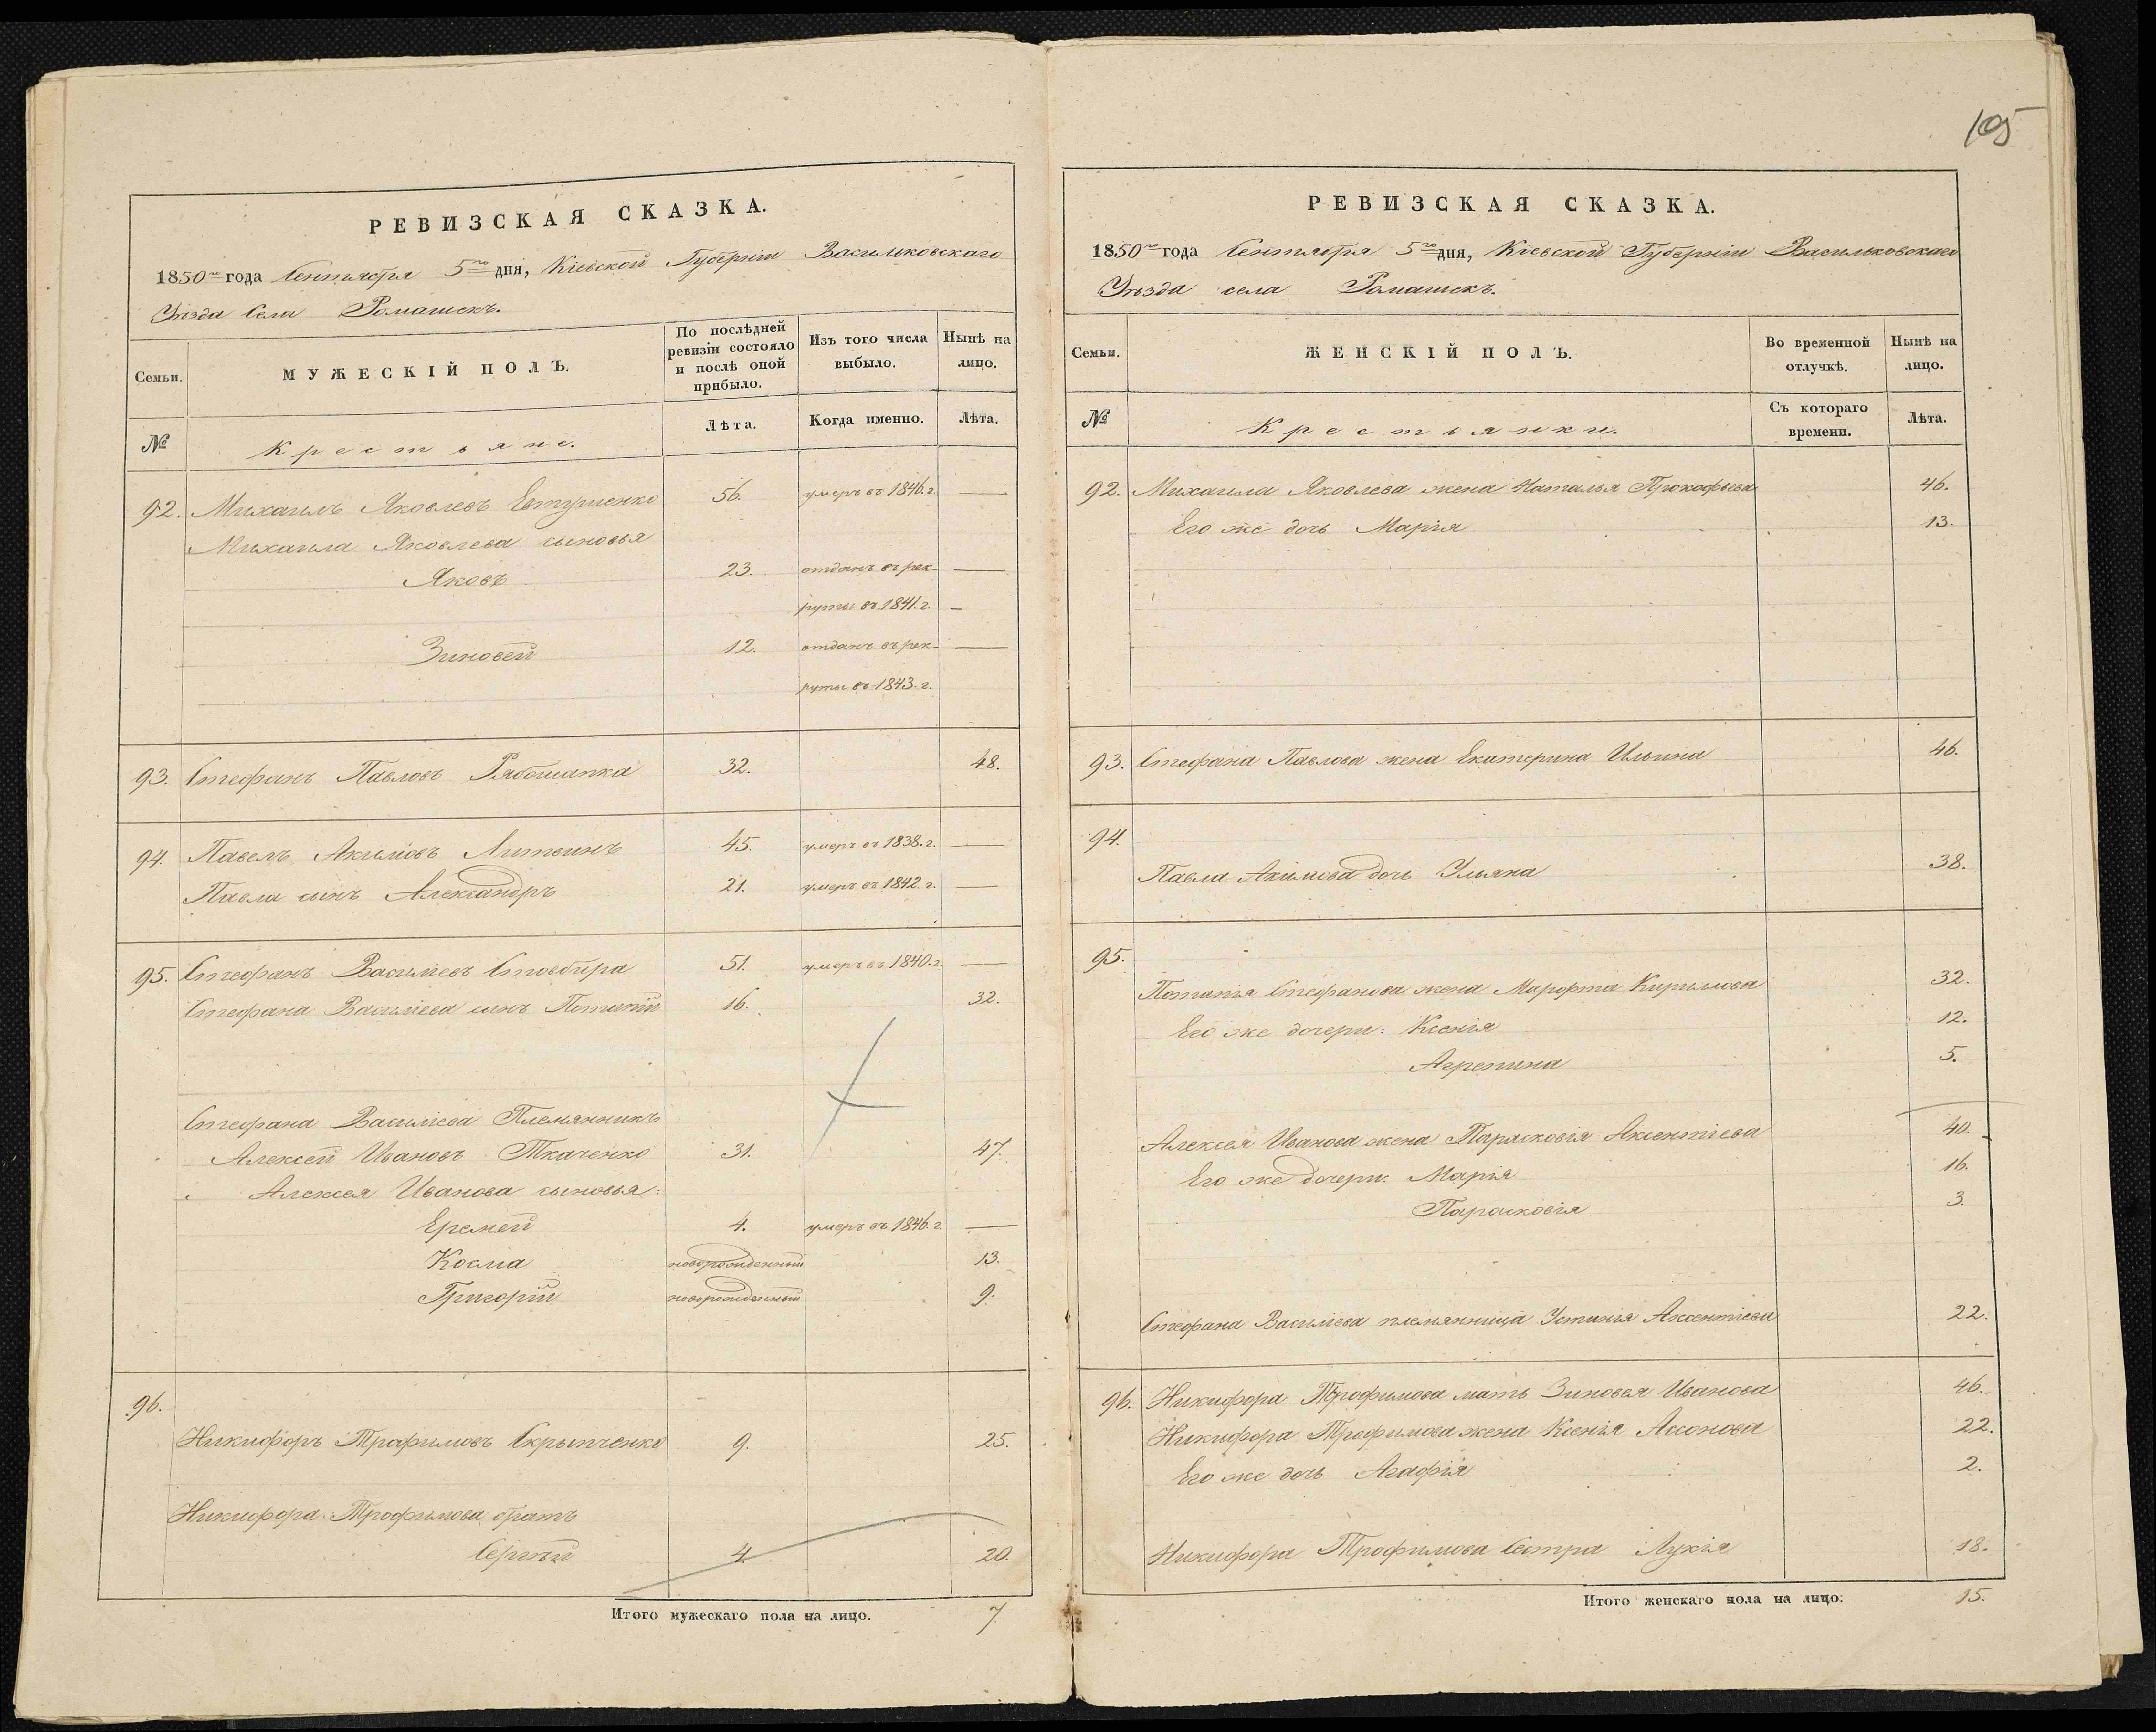 105
РЕВИЗСКАЯ СКАЗКА.
1850го года Сентября 5го дня, Кіевской Губерніи Васильковскаго
Уѣзда Села Ромашекъ.
Семьи.
МУЖЕСКІЙ ПОЛЪ.
По послѣдней ревизіи состояло и послѣ оной прибыло.
Изъ того числа выбыло.
Нынѣ на лицо.
№
Крестьяне.
Лѣта.
Когда именно.
Лѣта.
92. Михаилъ Яковлевъ Евтушенко 56. умеръ въ 1846. г. —
Михаила Яковлева сыновья
Яковъ 23. отданъ въ рек- —
руты въ 1841. г. —
Зиновей 12. отданъ въ рек- —
руты въ 1843. г.
93. Стефанъ Павловъ Рябошапка 32. 48.
94. Павелъ Акимовъ Литвинъ 45. умеръ въ 1838. г. —
Павла сынъ Александръ 21. умеръ въ 1842. г. —
95. Стефанъ Василіевъ Стовбира 51. умеръ въ 1840. г. —
Стефана Василіева сынъ Потапій 16. 32.
Стефана Василіева Племянникъ
Алексей Ивановъ Ткаченко 31. 47.
Алексея Иванова сыновья:
Еремей 4. умеръ въ 1846. г. —
Косма новорожденный 13.
Григорій новорожденный 9.
96.
Никифоръ Трофимовъ Скрыпченко 9. 25.
Никифора Трофимова братъ
Сергѣй 4. 20.
Итого мужескаго пола на лицо. 7.
РЕВИЗСКАЯ СКАЗКА.
1850го года Сентября 5го дня, Кіевской Губерніи Васильковскаго
Уѣзда села Ромашекъ.
Семьи.
ЖЕНСКІЙ ПОЛЪ.
Во временной отлучкѣ.
Нынѣ на лицо.
№
Крестьянки.
Съ котораго времени.
Лѣта.
92. Михаила Яковлева жена Наталья Прокофьева 46.
Его же дочь Марія 13.
93. Стефана Павлова жена Екатерина Ильина 46.
94.
Павла Акимова дочь Ульяна 38.
95.
Потапія Стефанова жена Марфта Кирилова 32.
Его же дочери: Ксенія 12.
Агрепина 5.
Алексея Иванова жена Парасковія Аксентіева 40.
Его же дочери: Марія 16.
Парасковія 3.
Стефана Василіева племянница Устинія Аксентіева 22.
96. Никифора Трофимова мать Зиновея Иванова 46.
Никифора Трофимова жена Ксенія Ассонова 22.
Его же дочь Агафія 2.
Никифора Трофимова Сестра Лукія 18.
Итого женскаго пола на лицо: 15.